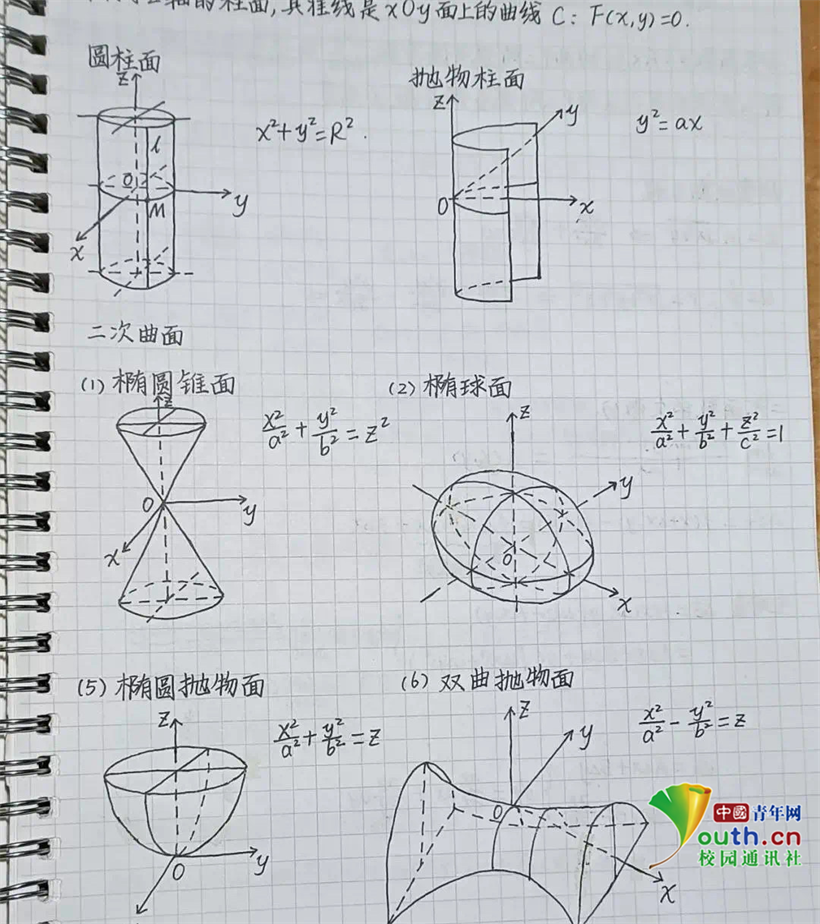 轴的柱面,其准线是xOy面上的曲线 C: F(x,y)=0.
圆柱面
z
l
O
M
y
x
x²+y²=R².
抛物柱面
z
y
O
x
y²=ax
二次曲面
(1) 椭圆锥面
z
O
y
x
x²/a²+y²/b²=z²
(2) 椭球面
z
y
O
x
x²/a²+y²/b²+z²/c²=1
(5) 椭圆抛物面
z
O
y
x²/a²+y²/b²=z
(6) 双曲抛物面
z
y
O
x
x²/a²-y²/b²=z
中國青年网
youth.cn
校园通讯社